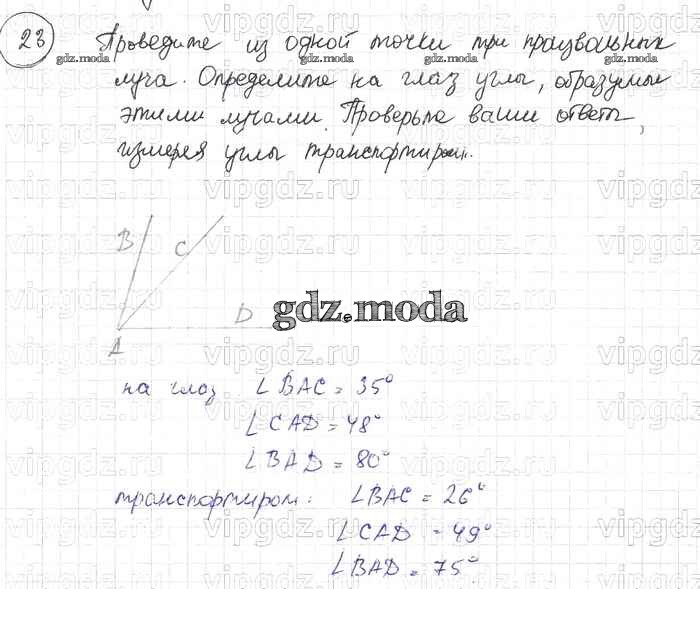 23
Проведите из одной точки три произвольных
луча. Определите на глаз углы, образуемые
этими лучами. Проверьте ваши ответы,
измеряя углы транспортиром.
B
C
D
A
gdz.moda
на глаз ∠BAC = 35°
∠CAD = 48°
∠BAD = 80°
транспортиром: ∠BAC = 26°
∠CAD = 49°
∠BAD = 75°
vipgdz.ru
gdz.moda